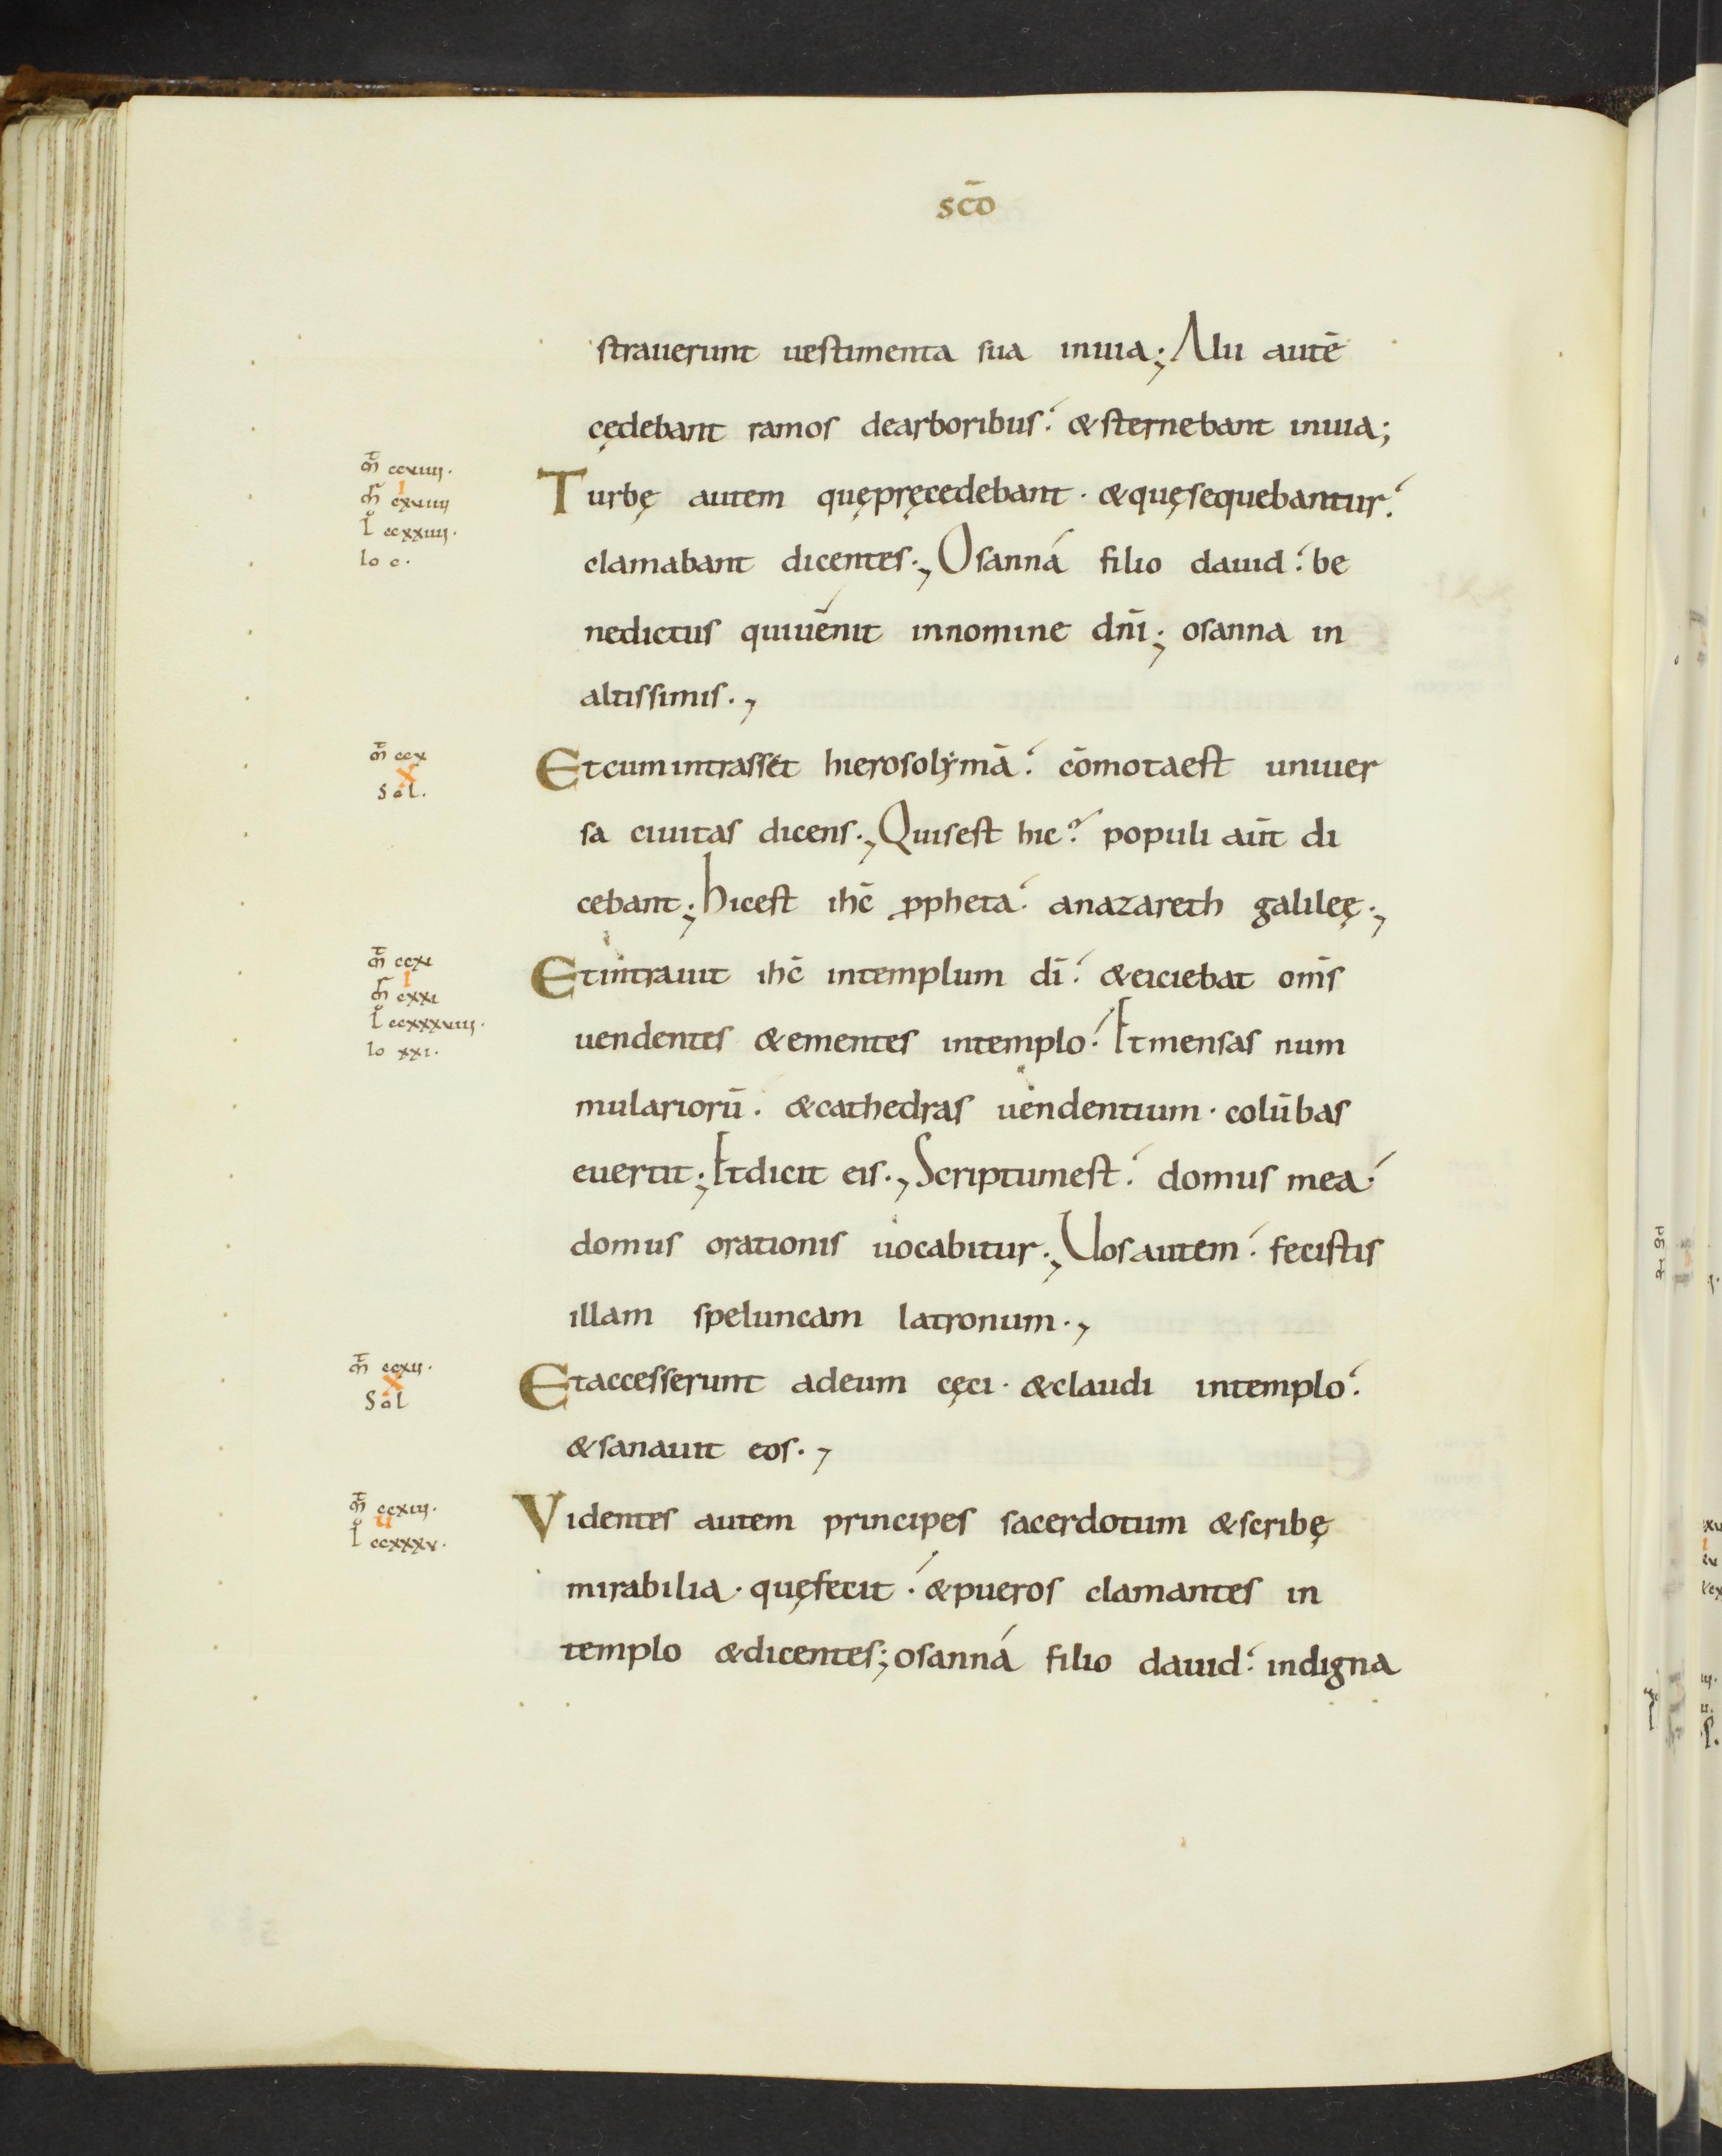 scō
strauerunt uestimenta sua inuia; Alii autē
cędebant ramos dearboribus. &sternebant inuia;
m̄ ccviiii.
i
m̄r cxviiii
l̊ ccxxiiii.
Io c.
Turbę autem quępręcedebant. &quęsequebantur.
clamabant dicentes., Osanná filio dauid. be
nedictus quiuenit innomine dn̄i; osanna in
altissimis.,
m̄ ccx
X
Sol.
Etcumintrasset hierosolẏmā. cōmotaest uniuer
sa ciuitas dicens., Quisest hic? populi aūt di
cebant; hicest ihc̄ ꝓpheta. anazareth galileę.,
m̄ ccxi
i
m̄r cxxi
l̊ ccxxxviii.
Io xxi.
Etintrauit ihc̄ intemplum dī. &eiciebat om̄s
uendentes &ementes intemplo. Etmensas num
mulariorū. &cathedras uendentium. colūbas
euertit; Etdicit eis., Scriptumest. domus mea.
domus orationis uocabitur., Uosautem. fecistis
illam speluncam latronum.,
m̄ ccxii.
X
Sol
Etaccesserunt adeum cęci. &claudi intemplo.
&sanauit eos.,
m̄ ccxiii.
u
l̊ ccxxxv.
Videntes autem principes sacerdotum &scribę
mirabilia. quęfecit. &pueros clamantes in
templo &dicentes; osanná filio dauid. indigna